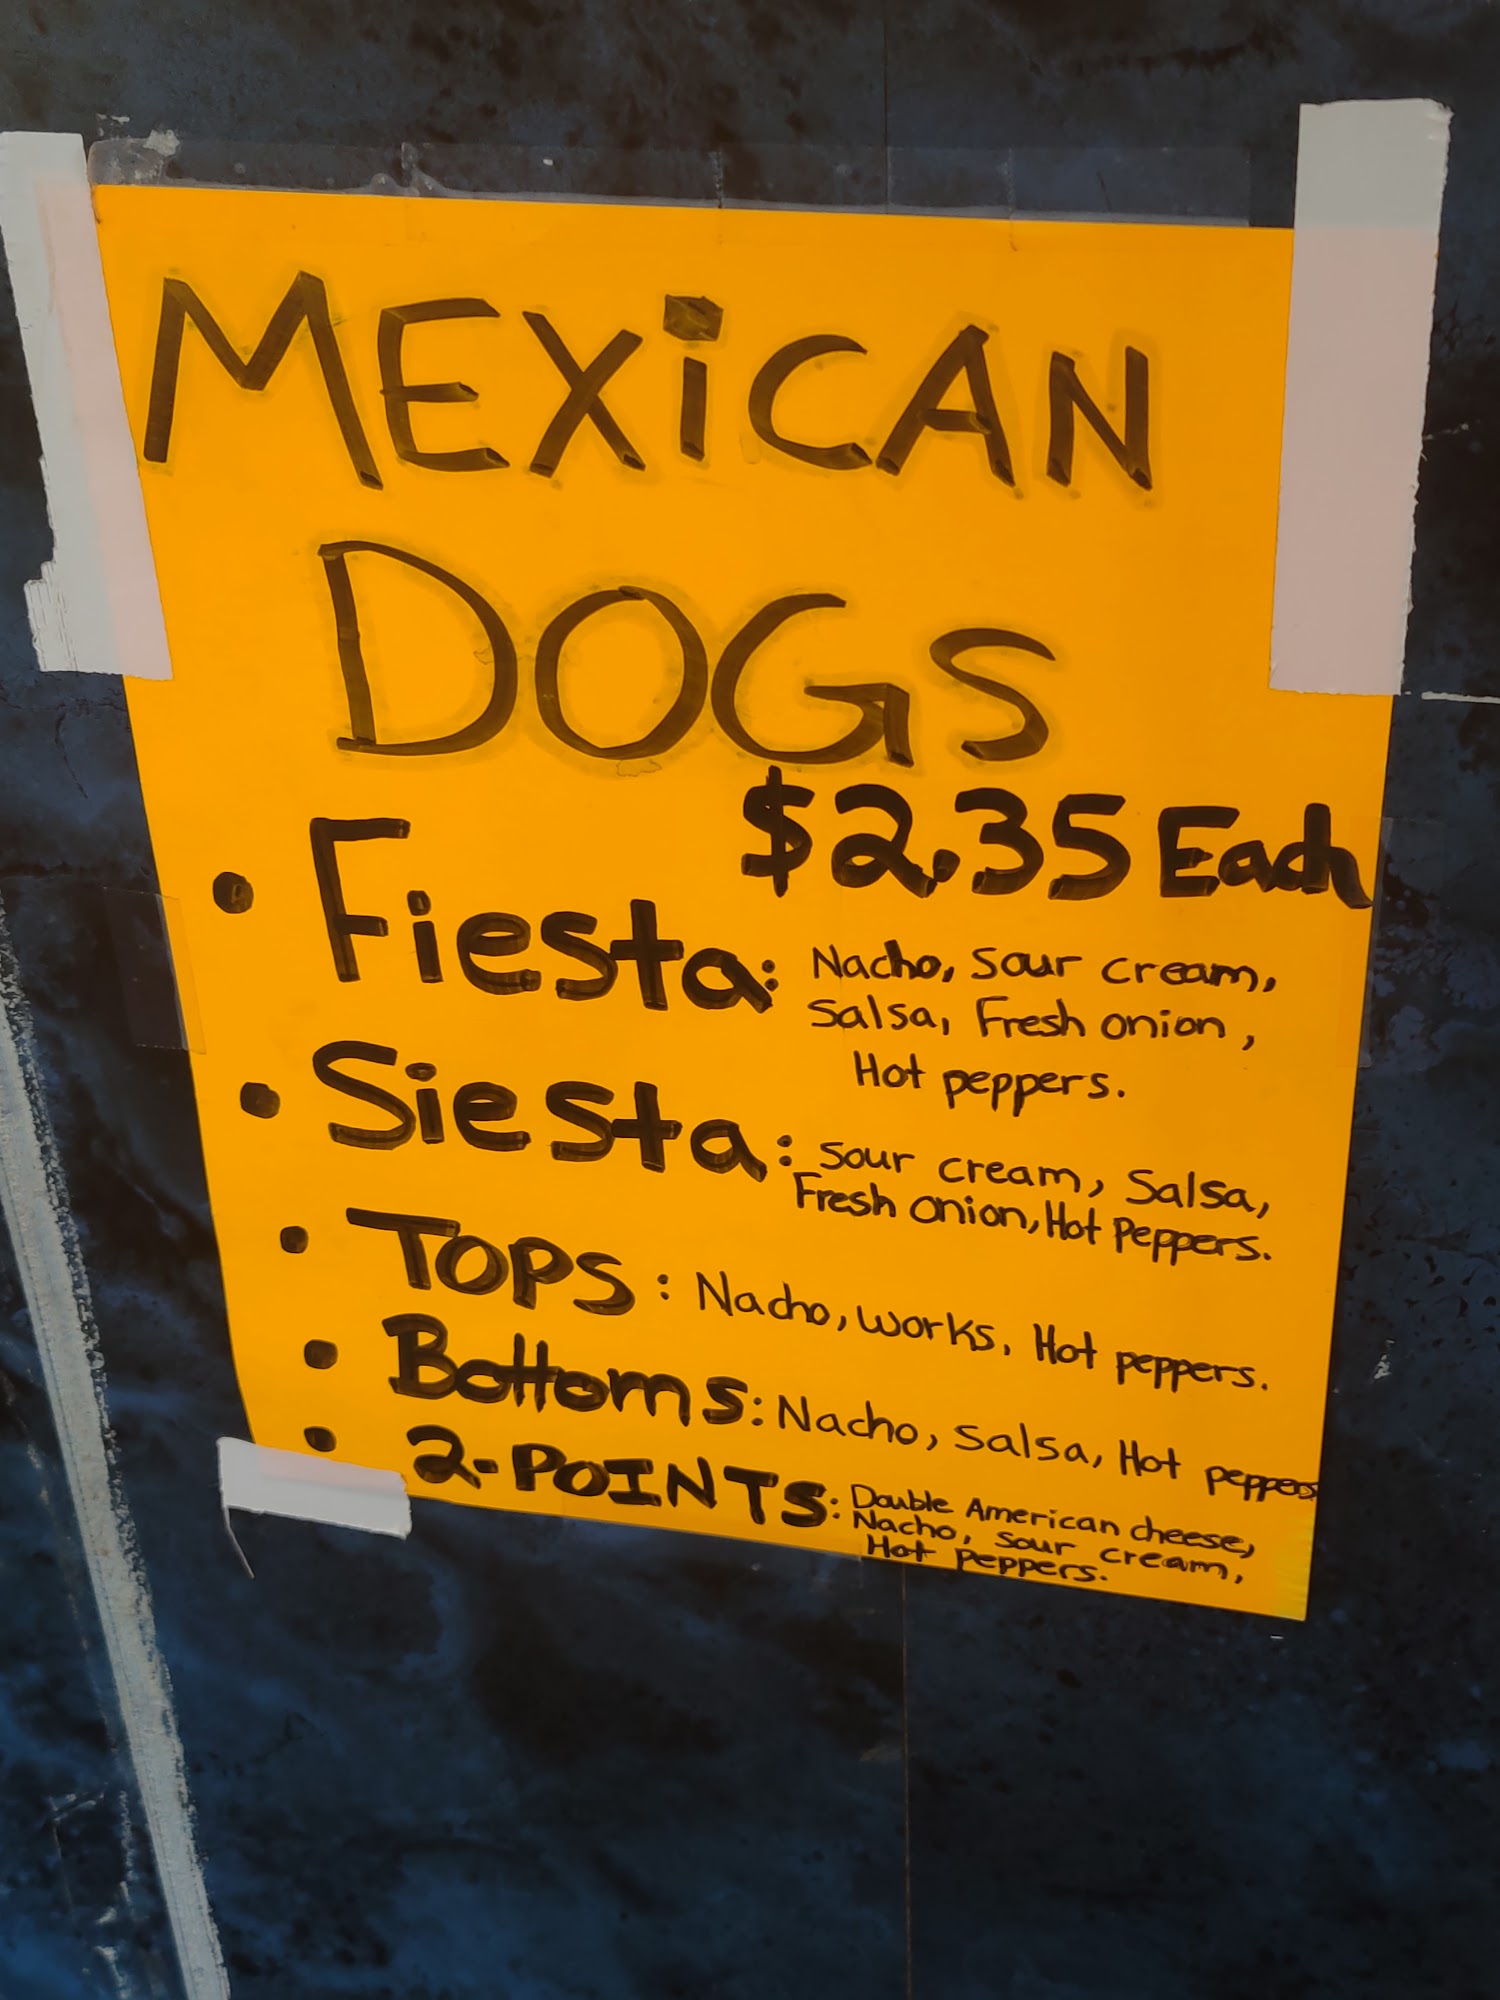 MEXiCAN
DOGS
$2.35 Each
• Fiesta: Nacho, Sour cream,
Salsa, Fresh onion,
Hot peppers.
• Siesta: Sour cream, Salsa,
Fresh onion, Hot Peppers.
• TOPS: Nacho, works, Hot peppers.
• Bottoms: Nacho, Salsa, Hot peppers
• 2-POINTS: Double American cheese,
Nacho, Sour cream,
Hot Peppers.